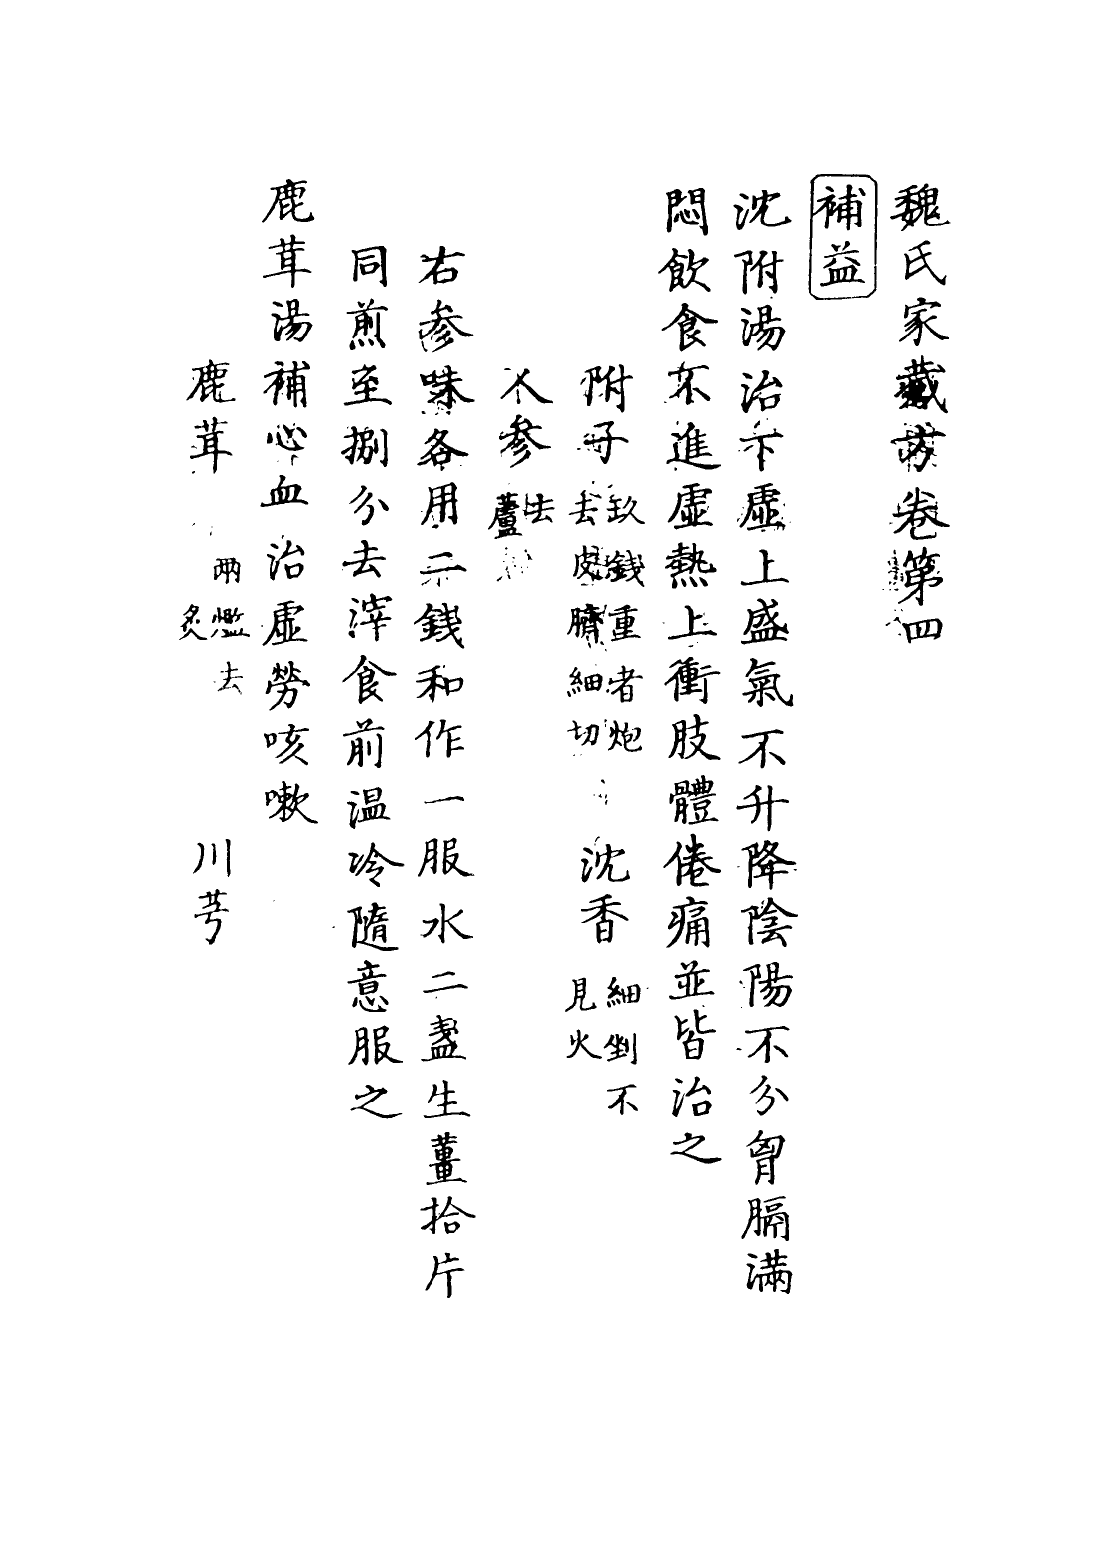 魏氏家藏方卷第四
補益
沈附湯治下虛上盛氣不升降陰陽不分胷膈滿
悶飲食不進虛熱上衝肢體倦痛並皆治之
附子玖錢重者炮去皮臍細切 沈香細剉不見火
人參去蘆
右参味各用二錢和作一服水二盞生薑拾片
同煎至捌分去滓食前温冷隨意服之
鹿茸湯補心血治虛勞咳嗽
鹿茸 兩爁去炙 川芎